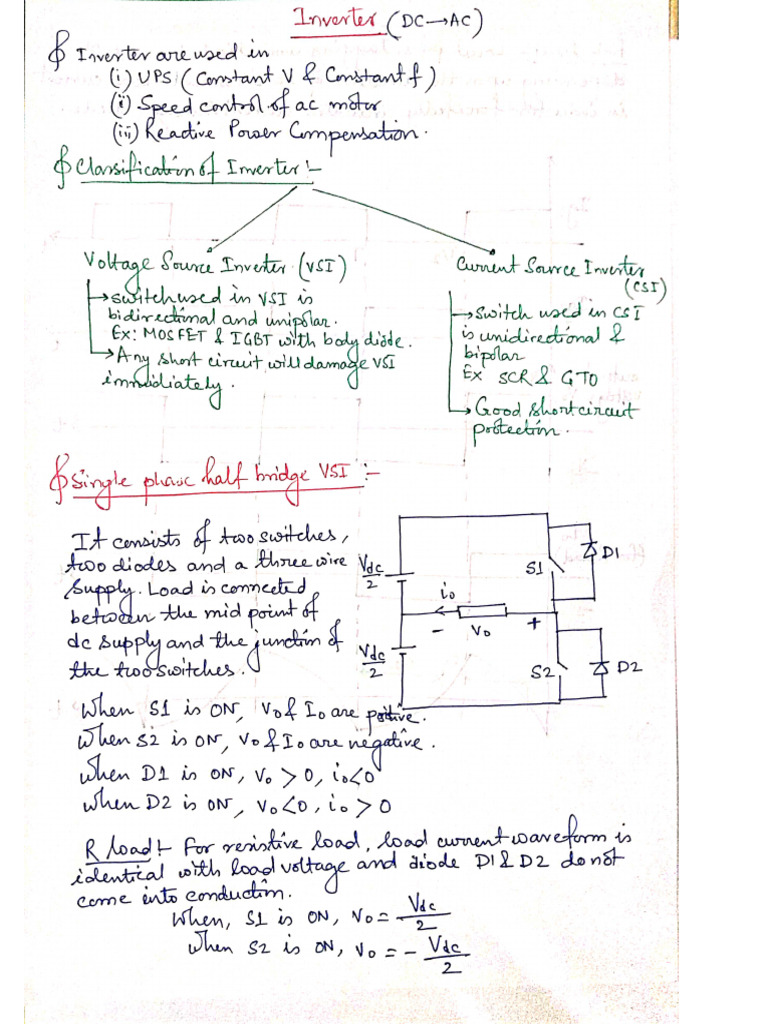 Inverter (DC→AC)
Inverter are used in
(i) UPS (Constant V & Constant f)
(ii) Speed control of ac motor
(iii) Reactive Power Compensation.
Classification of Inverter :-
Voltage Source Inverter (VSI)
→ switch used in VSI is
bidirectional and unipolar.
Ex: MOSFET & IGBT with body diode.
→ Any short circuit will damage VSI
immediately.
Current Source Inverter
(CSI)
→ Switch used in CSI
is unidirectional &
bipolar
Ex SCR & GTO
→ Good short circuit
protection.
Single phase half bridge VSI :-
It consists of two switches,
two diodes and a three wire
supply. Load is connected
between the mid point of
dc supply and the junction of
the two switches.
Vdc/2
S1
D1
io
- Vo +
Vdc/2
S2
D2
When S1 is ON, Vo & Io are positive.
When S2 is ON, Vo & Io are negative.
When D1 is ON, Vo > 0, io < 0
When D2 is ON, Vo < 0, io > 0
R load :- For resistive load, load current waveform is
identical with load voltage and diode D1 & D2 do not
come into conduction.
When, S1 is ON, Vo = Vdc/2
When S2 is ON, Vo = - Vdc/2